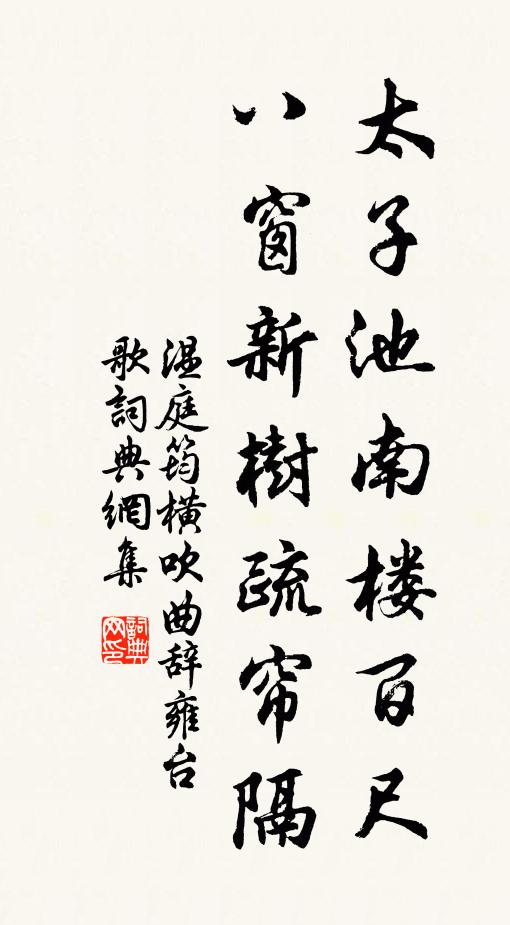 太子池南楼百尺
八窗新樹疏帘隔
温庭筠橫吹曲辞雍台
歌詞典網集
詞典网印